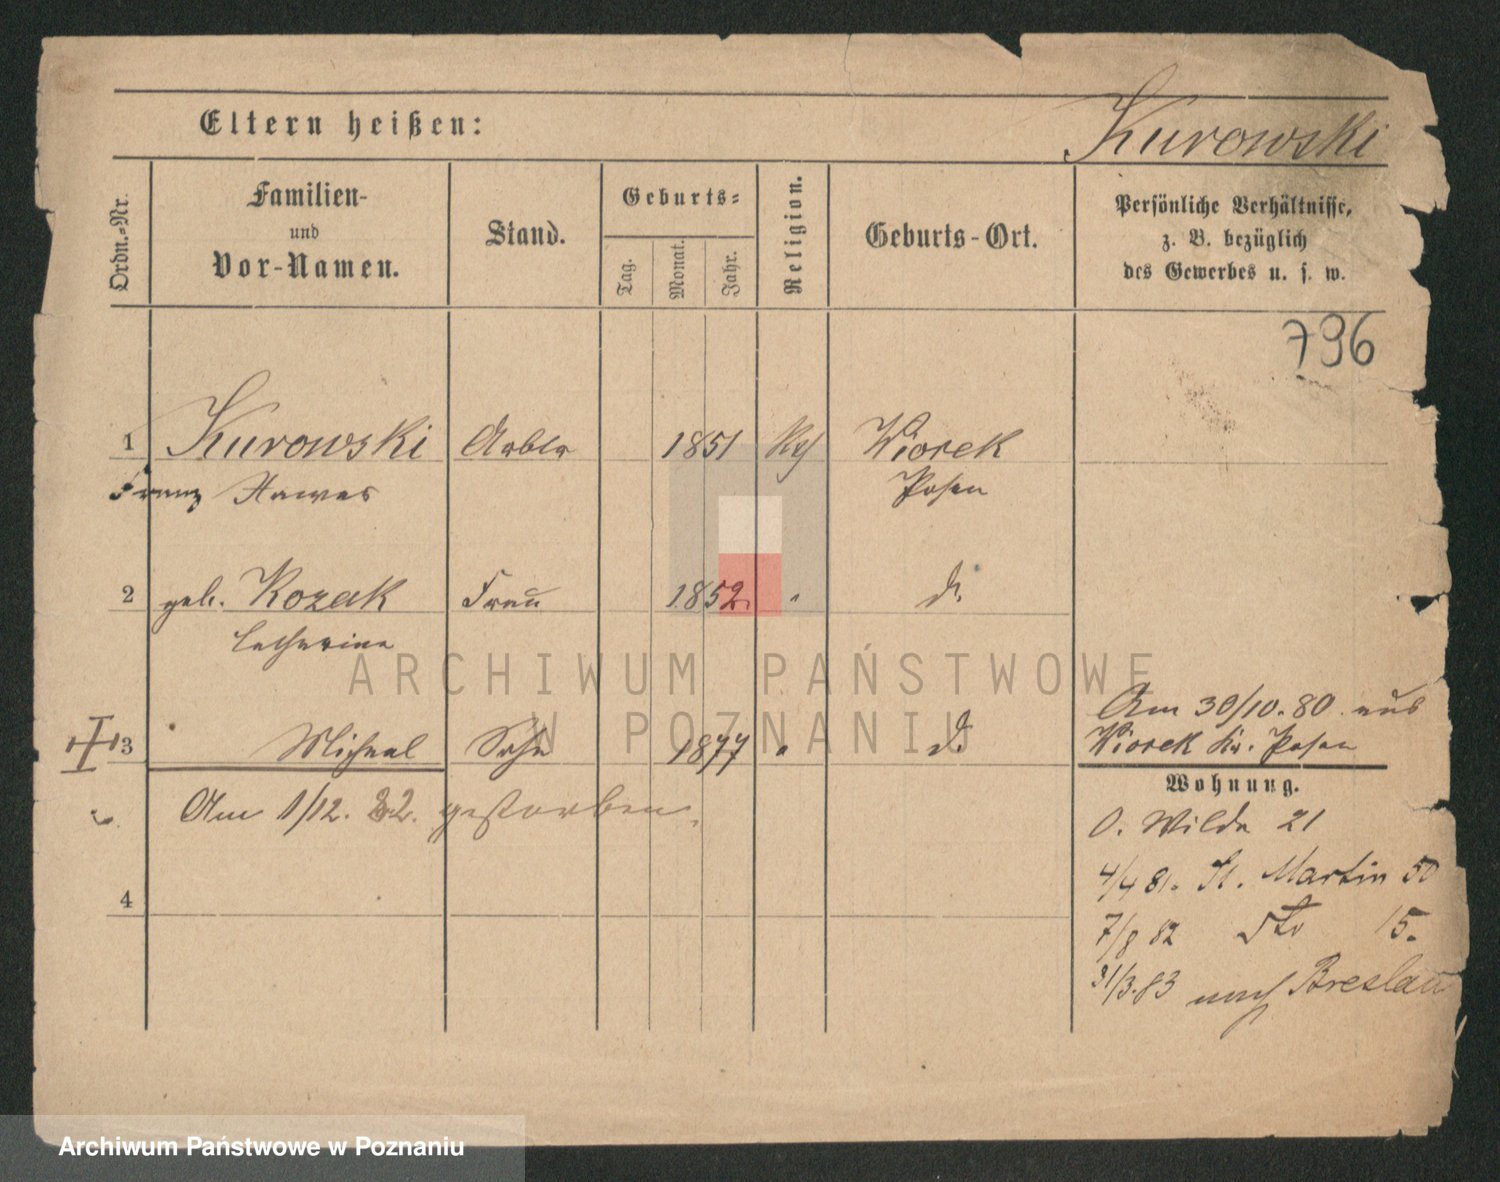 Eltern heißen:
Kurowski
Ordn.-Nr.
Familien-
und
Vor-Namen.
Stand.
Geburts-
Tag.
Monat.
Jahr.
Religion.
Geburts-Ort.
Persönliche Verhältnisse,
z. B. bezüglich
des Gewerbes u. s. w.
796
1 Kurowski Arbtr 1851 Wiorek
Franz Posen
2 geb. Kozak Frau 1852. " do.
Catharina
ARCHIWUM PAŃSTWOWE
W POZNANIU
Am 30/10.80 aus
3 Michael Sohn 1877 " do. Wiorek Kr. Posen
Wohnung.
Am 1/12. 82. gestorben.
O. Wilda 21
4/4 81. St. Martin 50
4
7/8 82 dto 15.
31/3.83 nach Breslau
Archiwum Państwowe w Poznaniu